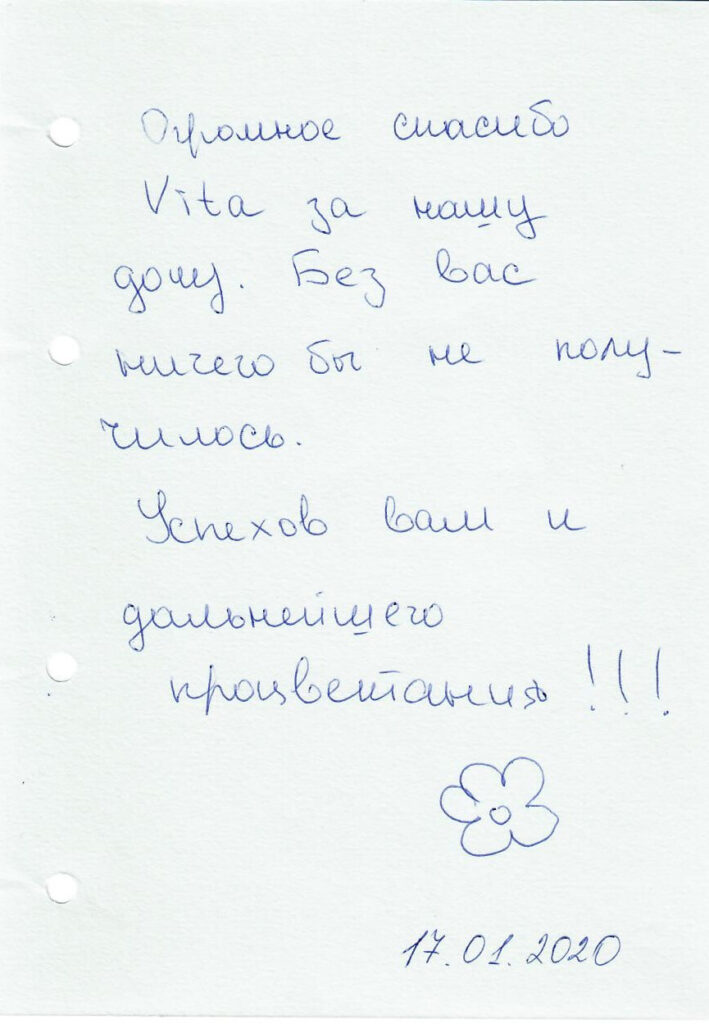 Огромное спасибо
Vita за нашу
дочу. Без вас
ничего бы не полу-
чилось.
Успехов вам и
дальнейшего
процветания !!!
17.01.2020